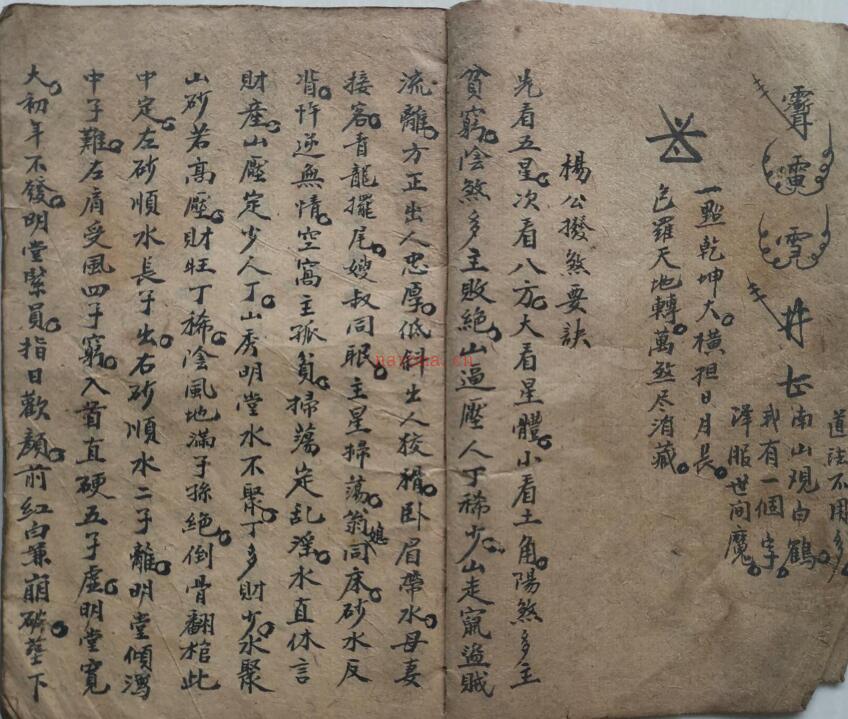 道法不用多
南山現白鶴
我有一個字
澤服世间魔
井
一點乾坤大。橫担日月長。
包羅天地轉。萬煞尽消藏。
楊公撥煞要訣
先看五星。次看八方。大看星體。小看土角。陽煞多主
貧窮。陰煞多主敗絶。山逼壓人丁稀少。山走竄盗賊
流離。方正出人忠厚。低斜出人狡猾。卧眉帶水。母妻
接客。青龍擺尾。嫂叔同眠。主星掃蕩。翁媳同床。砂水反
背。忤逆無情。空窩主孤貧。掃蕩定乱淫。水直休言
財産。山壓定少人丁。山秀明堂水不聚。丁多財少。水聚
山砂若高壓。財旺丁稀。陰風地滿子孫絶。倒骨翻棺此
中定。左砂順水長子出。右砂順水二子離。明堂傾瀉
中子難。左肩受風四子窮。入首直硬五子虛。明堂寬
大。初年不發。明堂緊員。指日歡顔。前紅白兼崩破。莖下